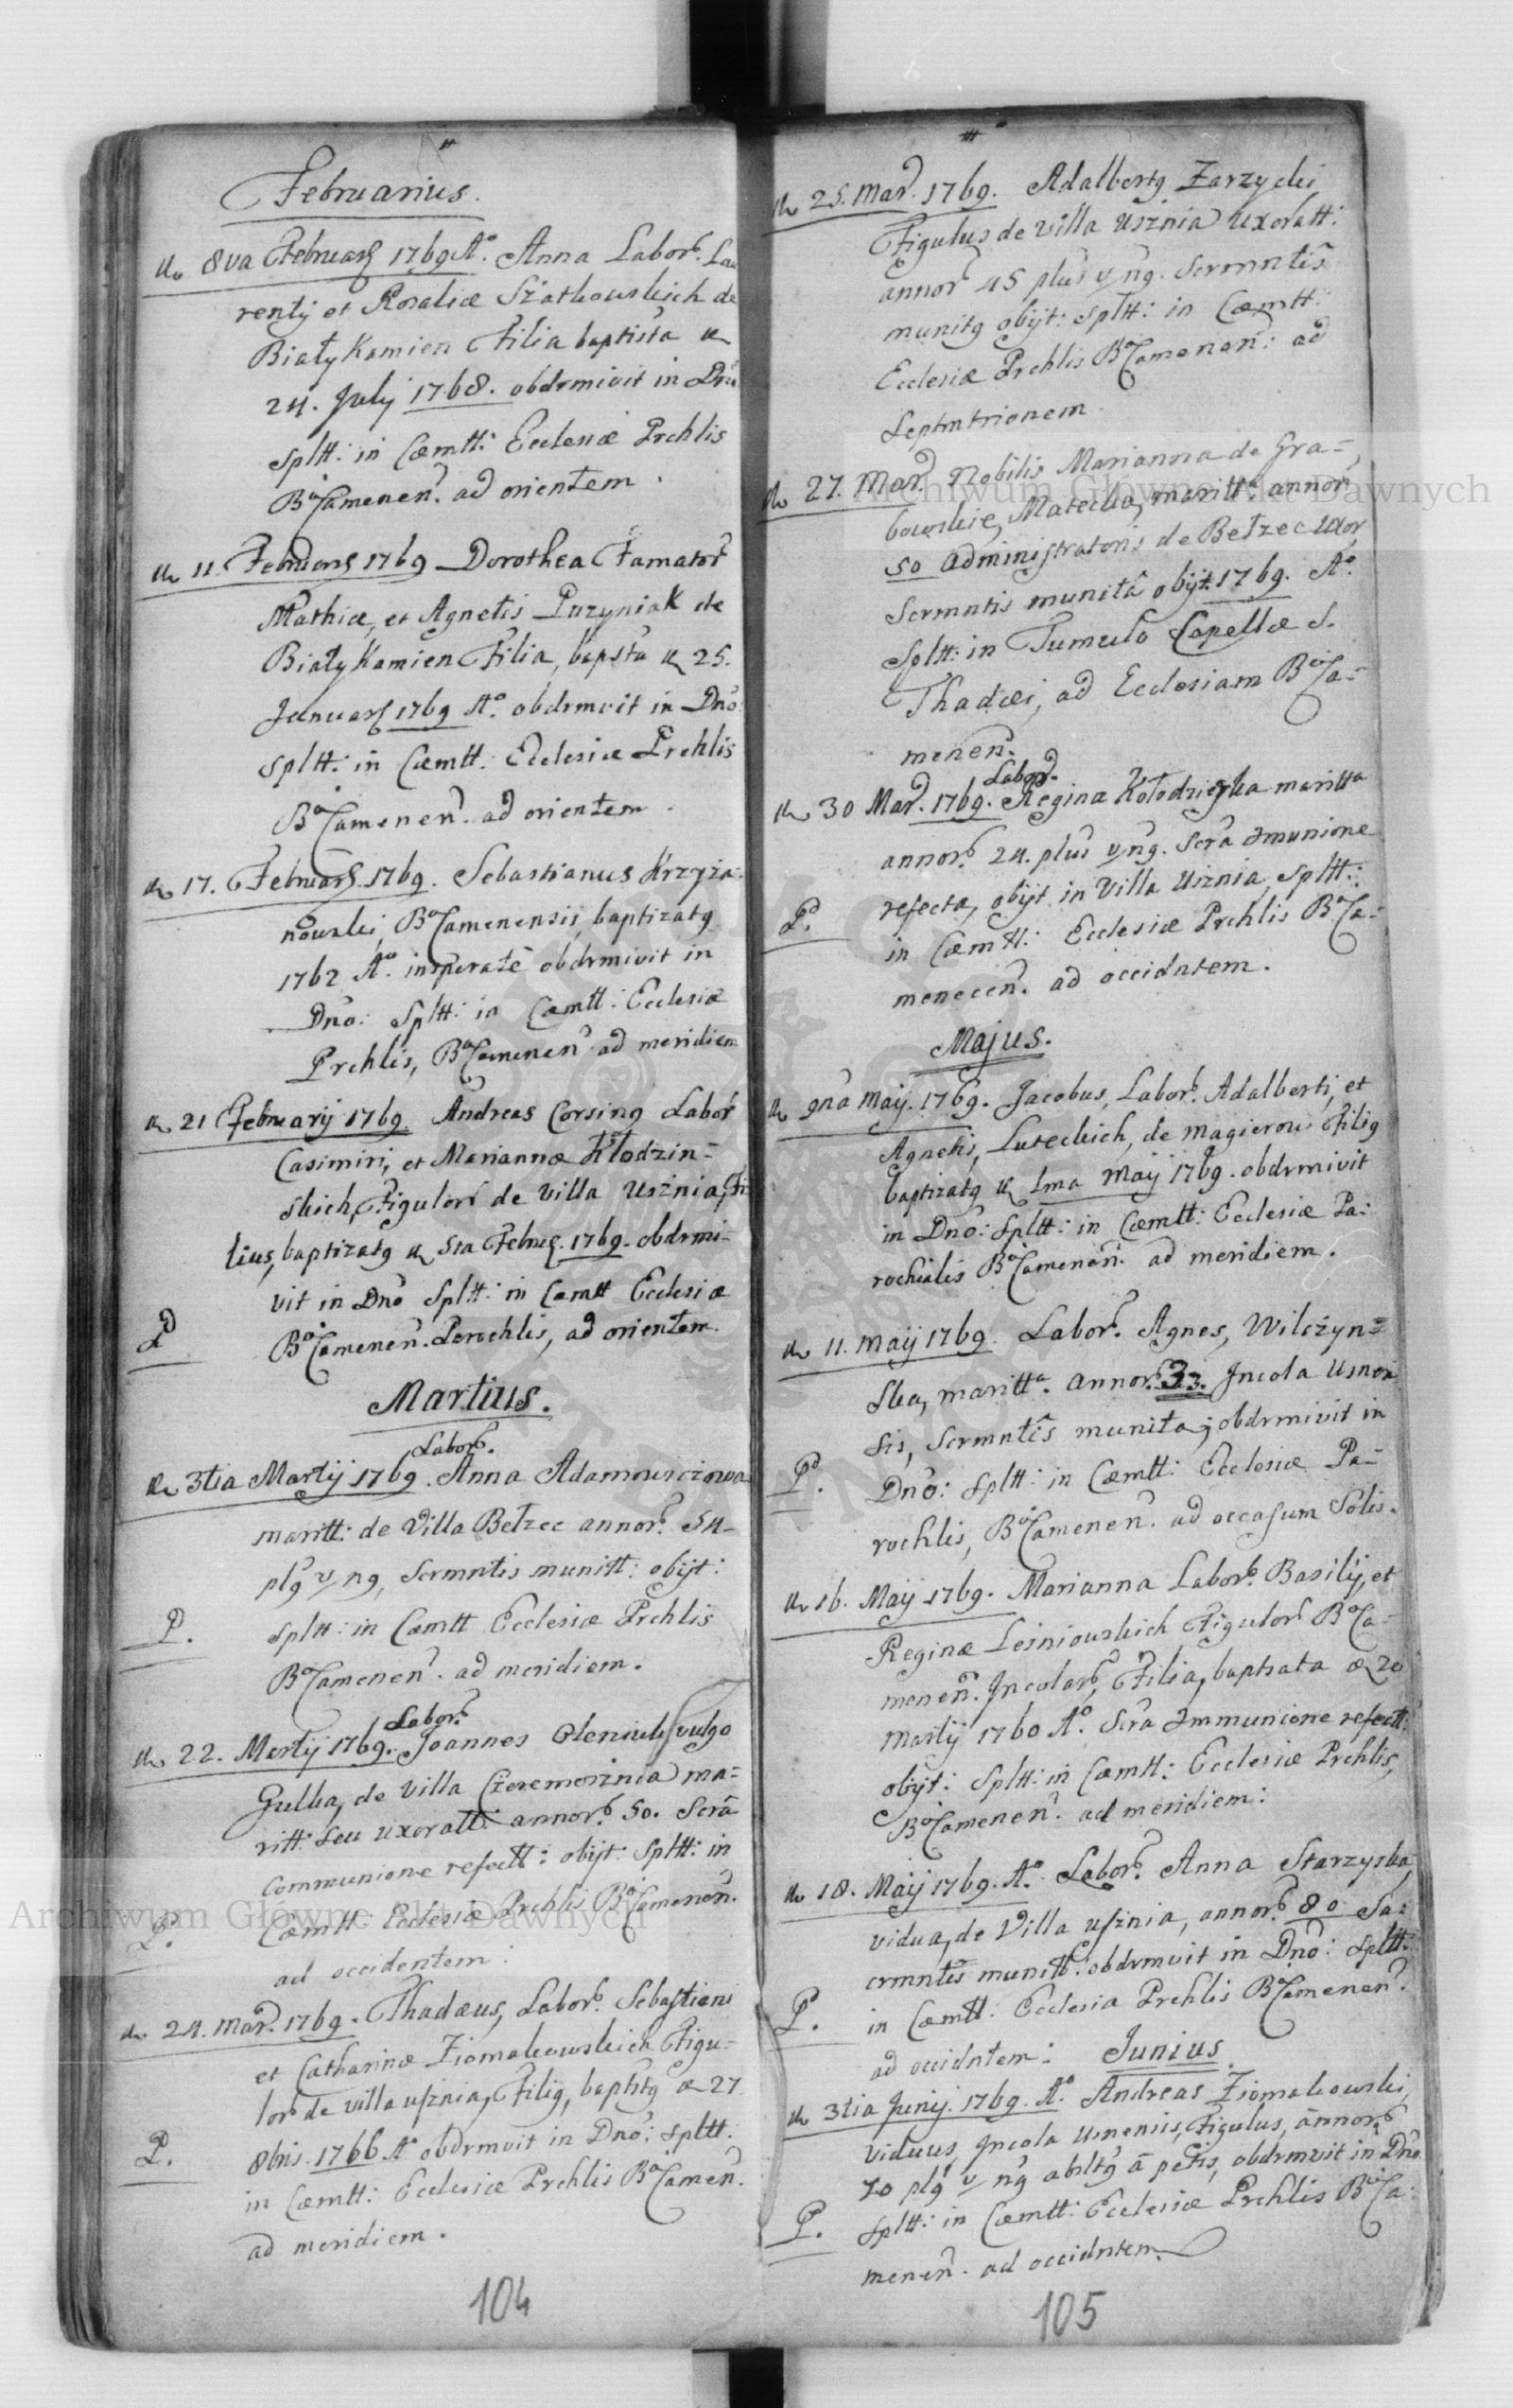 Februarius.
8va Februarÿ 1769 A°. Anna Labor. Lau
rentÿ et Rosaliæ Szatkowskich de
Biały Kamien Filia baptista
24. Julÿ 1768. obdrmivit in Dno
Spltt: in Cæmtt: Ecclesiæ Prchlis
BaCamenen. ad orientem.
11. Februarÿ 1769 Dorothea Famator
Mathiæ, et Agnetis Puzyniak de
Biały Kamien Filia, bapsta 25.
Januarÿ 1769 A°. obdrmvit in Dno
Spltt: in Cæmtt: Ecclesiæ Prchlis
BaCamenen. ad orientem.
17. Februarÿ 1769. Sebastianus Krzyża-
nowski, BaCamenensis, baptizatg
1762 A°. insperatè obdrmivit in
Dno: Spltt: in Cæmtt: Ecclesiæ
Prchlis, BaCamenen ad meridiem
21 Februarij 1769. Andreas Corsing Labor
Casimiri, et Mariannæ Kłodzin=
skich, Figulor de villa Usznia, Fi
lius, baptizatg 5ta Febrũ. 1769. obdrmi-
vit in Dno Spltt: in Cæmtt Ecclesiæ
BaCamenen. Parochlis, ad orientem.
Martius.
Labor.
3tia Martij 1769. Anna Adamowiczowa
maritt: de Villa Bełzec annor. 54-
plg v/ng, Scrmntis munitt: obijt:
P. Spltt: in Cæmtt Ecclesiæ Prchlis
BaCamenen. ad meridiem.
Labor.
22. Martij 1769. Joannes Oleniuk vulgo
Gulka, de Villa Czeremosznia ma=
ritt: seu uxoratt: annor. 50. Scrã
Communione refectt: obijt: Spltt: in
P. Cæmtt: Ecclesiæ Prchlis BaCamenen.
ad occidentem:
24. Mar. 1769. Thadæus, Labor. Sebastiani
et Catharinæ Ziomakowskich Figu-
lor de villa usznia, Filig, baptstg 27
8bris. 1766 A° obdrmvit in Dno: Spltt:
P. in Cæmtt: Ecclesiæ Prchlis BaCamen.
ad meridiem.
104
25. Mar. 1769. Adalbertg Zarzycki
Figulus de villa Usznia Uxoratt:
annor 45 plus v/ng. Scrmntis
munitg obijt: Spltt: in Cæmtt:
Ecclesiæ Prchlis BaCamenen: ad
Septmtrionem.
27. Mar. Nobilis Marianna de Gra=
bowskie, Matecka, maritta annor.
50 Administratoris de Bełzec Uxor,
Scrmntis munitâ obijt. 1769. A°.
Spltt: in Tumulo Capellæ S.
Thadæi, ad Ecclesiam BaCa=
menen.
Labor.
30 Mar. 1769. Regina Kołodzieyka maritta
annor. 24. plus v/ng. Scrâ Jmunione
P. refecta, obijt in Villa Usznia, Spltt:
in Cæmtt: Ecclesiæ Prchlis BaCa=
menecen. ad occidntem.
Majus.
9na Maij. 1769. Jacobus, Labor. Adalberti, et
Agnetis, Luteckich, de Magierow Filig
baptizatg 1ma Maij 1769. obdrmivit
in Dno: Spltt: in Cæmtt: Ecclesiæ Pa:
rochialis BaCamenen. ad meridiem.
11. Maij 1769. Labor. Agnes, Wilczyn=
ska, maritta. annor. 33. Jncola Usnen
sis, Scrmntis munita, obdrmivit in
P. Dno: Spltt: in Cæmtt: Ecclesiæ Pa=
rochlis, BaCamenen. ad occasum Solis.
16. Maij 1769. Marianna Labor. Basilij, et
Reginæ Leśniowskich Figulor BaCa=
menen. Jncolar, Filia, baptsata 20
Martij 1760 A°. Scrâ Jmmunione refectt:
obijt: Spltt: in Cæmtt: Ecclesiæ Prchlis,
BaCamenen. ad meridiem:
18. Maij 1769. A°. Labor. Anna Starzyska
vidua, de Villa usznia, annor. 80 Sa:
crmntis munitt: obdrmvit in Dno: Spltt:
P. in Cæmtt: Ecclesia Prchlis BaCamenen.
ad occidntem: Junius.
3tia Junij. 1769. A° Andreas Ziomakowski,
viduus, Jncola Usnensis, Figulus, annor.
70 plg v/ng absltg â pctis, obdrmvit in Dno
P. Spltt: in Cæmtt: Ecclesiæ Prchlis BaCa:
menen. ad occidntem.
105
Archiwum Główne Akt Dawnych
Archiwum Główne Akt Dawnych